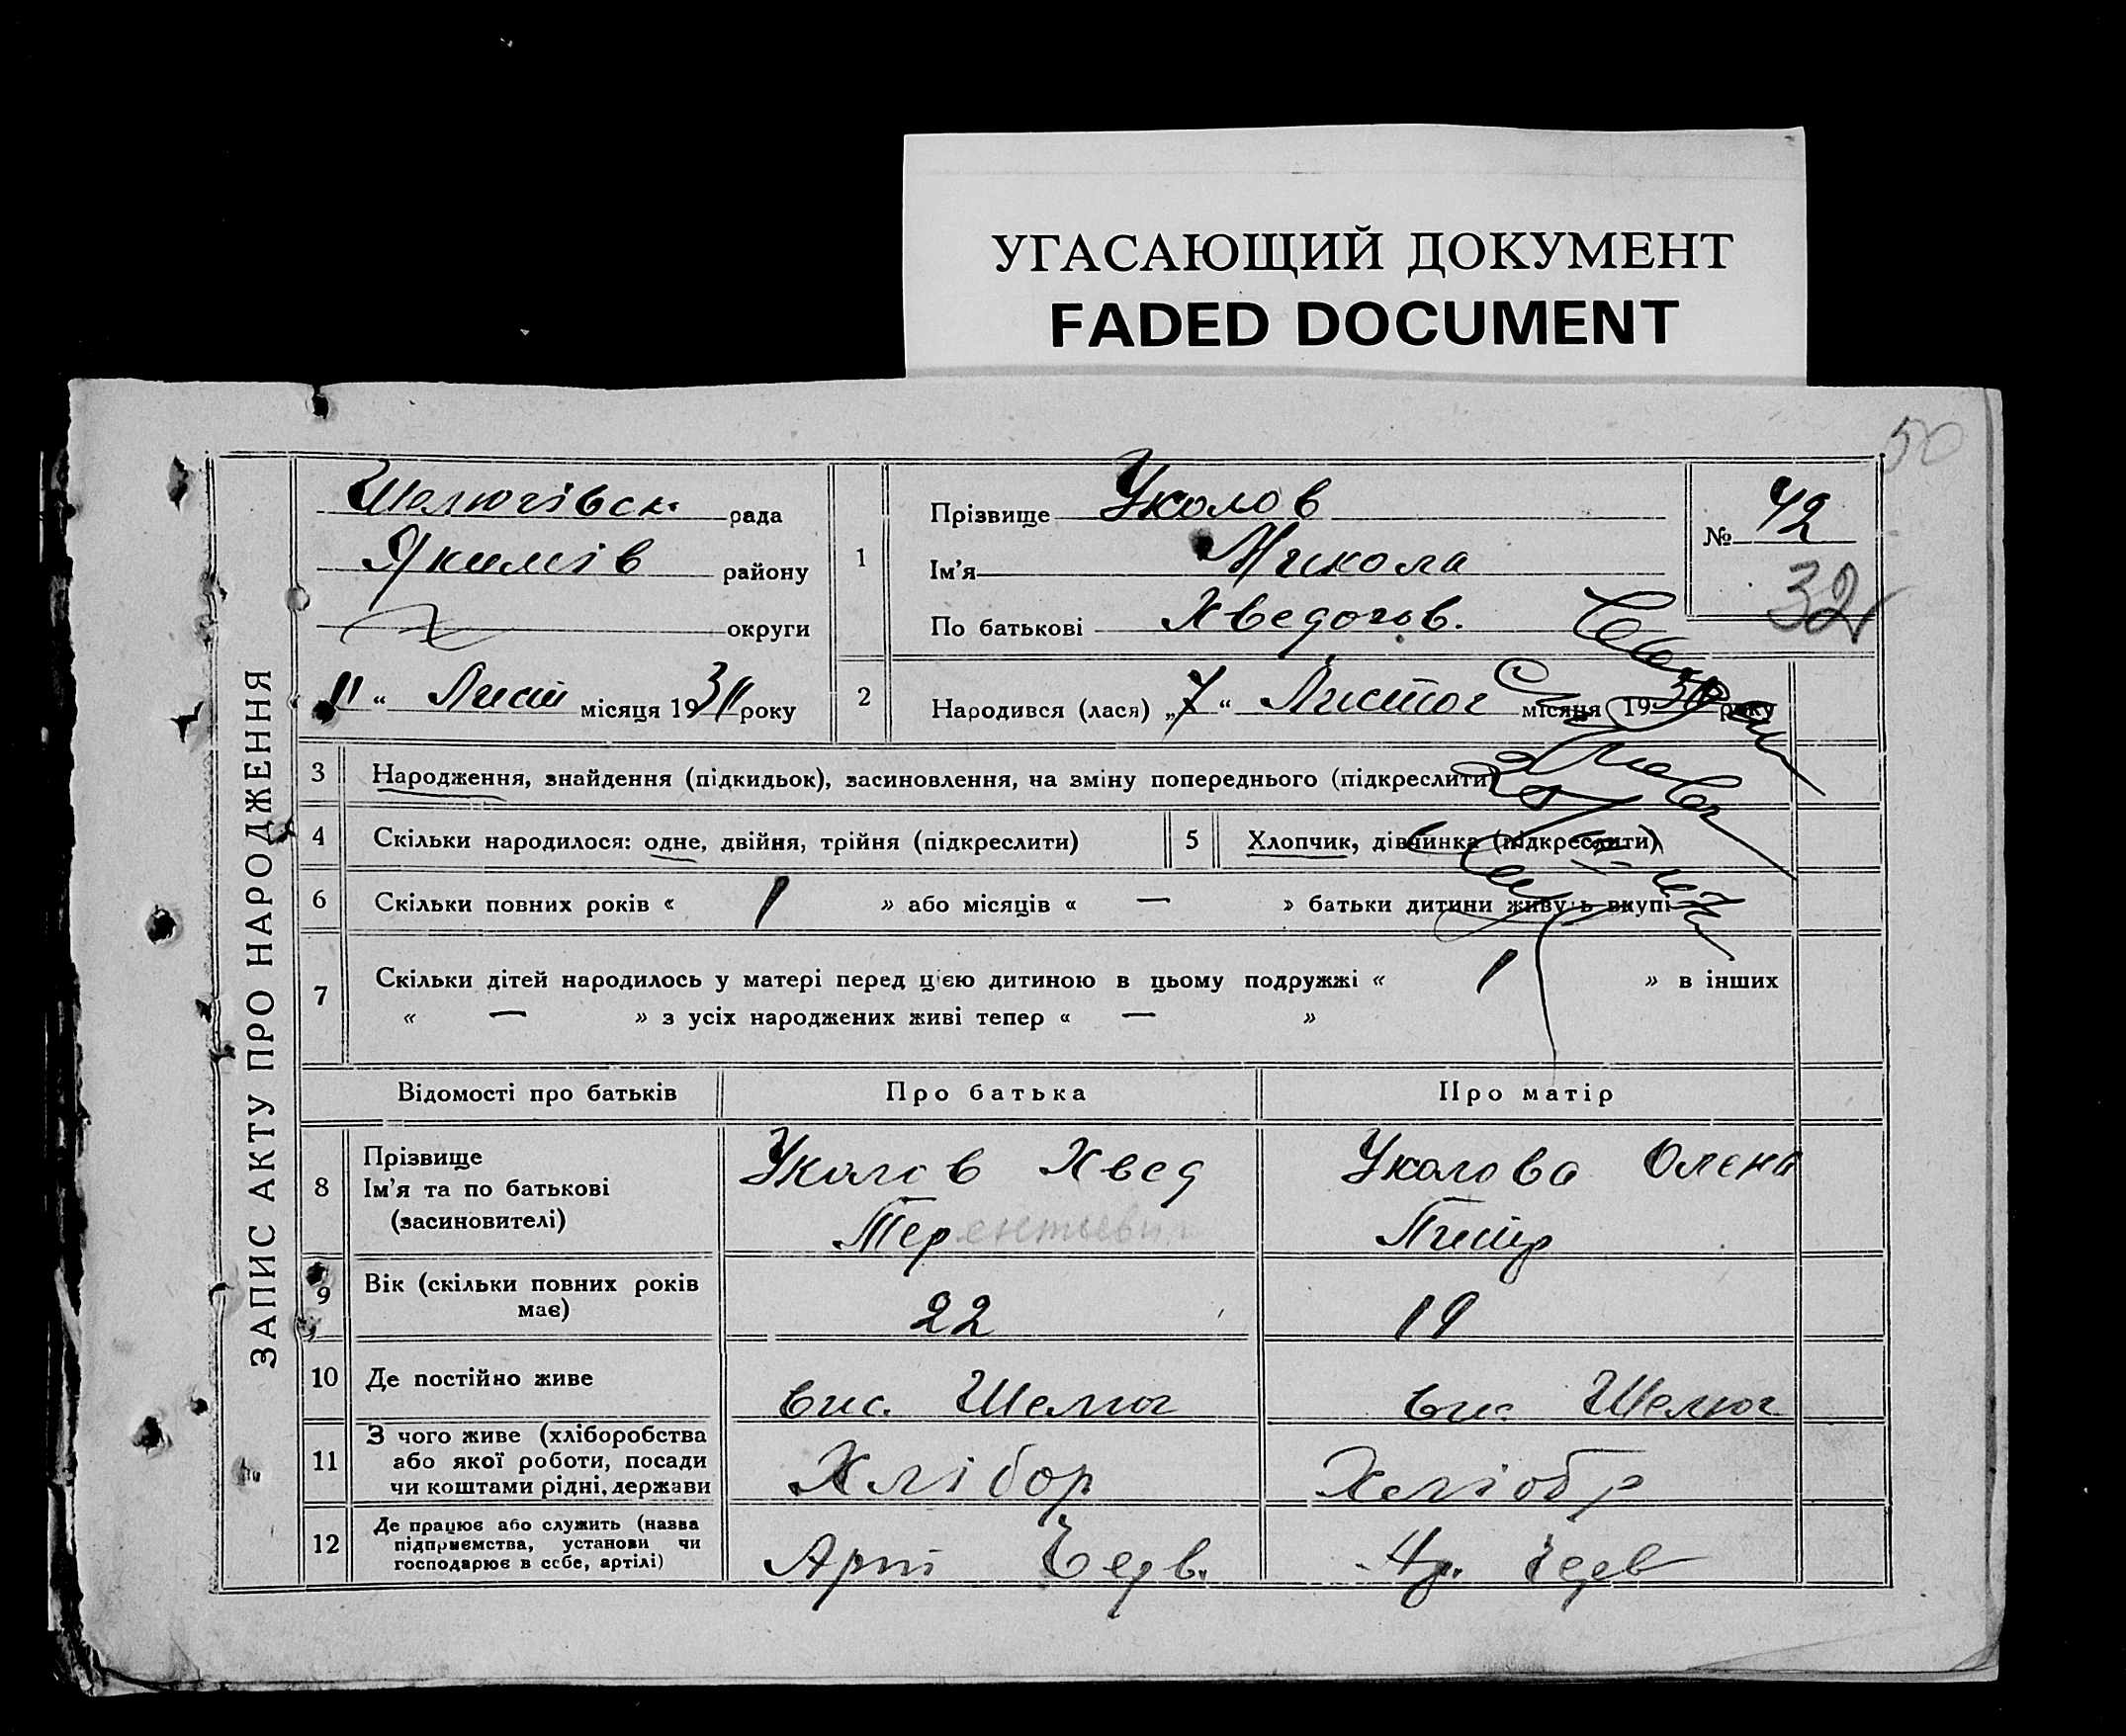 УГАСАЮЩИЙ ДОКУМЕНТ
FADED DOCUMENT
50
ЗАПИС АКТУ ПРО НАРОДЖЕННЯ
Шелюгівск. рада
Якимів району
округи
11 “ Лист місяця 1931 року
1
Прізвище Уколов
Ім'я Микола
По батькові Хведоров.
№ 42
32
2 Народився (лася) „7 “ Листог місяця 193 року
3 Народження, знайдення (підкидьок), засиновлення, на зміну попереднього (підкреслити)
4 Скільки народилося: одне, двійня, трійня (підкреслити)
5 Хлопчик, дівчинка (підкреслити)
6 Скільки повних років « 1 » або місяців « — » батьки дитини живуть вкупі
7 Скільки дітей народилось у матері перед цією дитиною в цьому подружжі « 1 » в інших
« — » з усіх народжених живі тепер « — »
Відомості про батьків Про батька Про матір
8 Прізвище
Ім'я та по батькові
(засиновителі)
Уколов Хвед
Терентьевич
Уколова Олена
Питр
9 Вік (скільки повних років
має)
22
19
10 Де постійно живе вис. Шелюг вис. Шелюг
11 З чого живе (хліборобства
або якої роботи, посади
чи коштами рідні, держави
Хлібор
Хліобр
12 Де працює або служить (назва
підприємства, установи чи
господарює в себе, артілі)
Арт Чедв.
Ар. Чедв